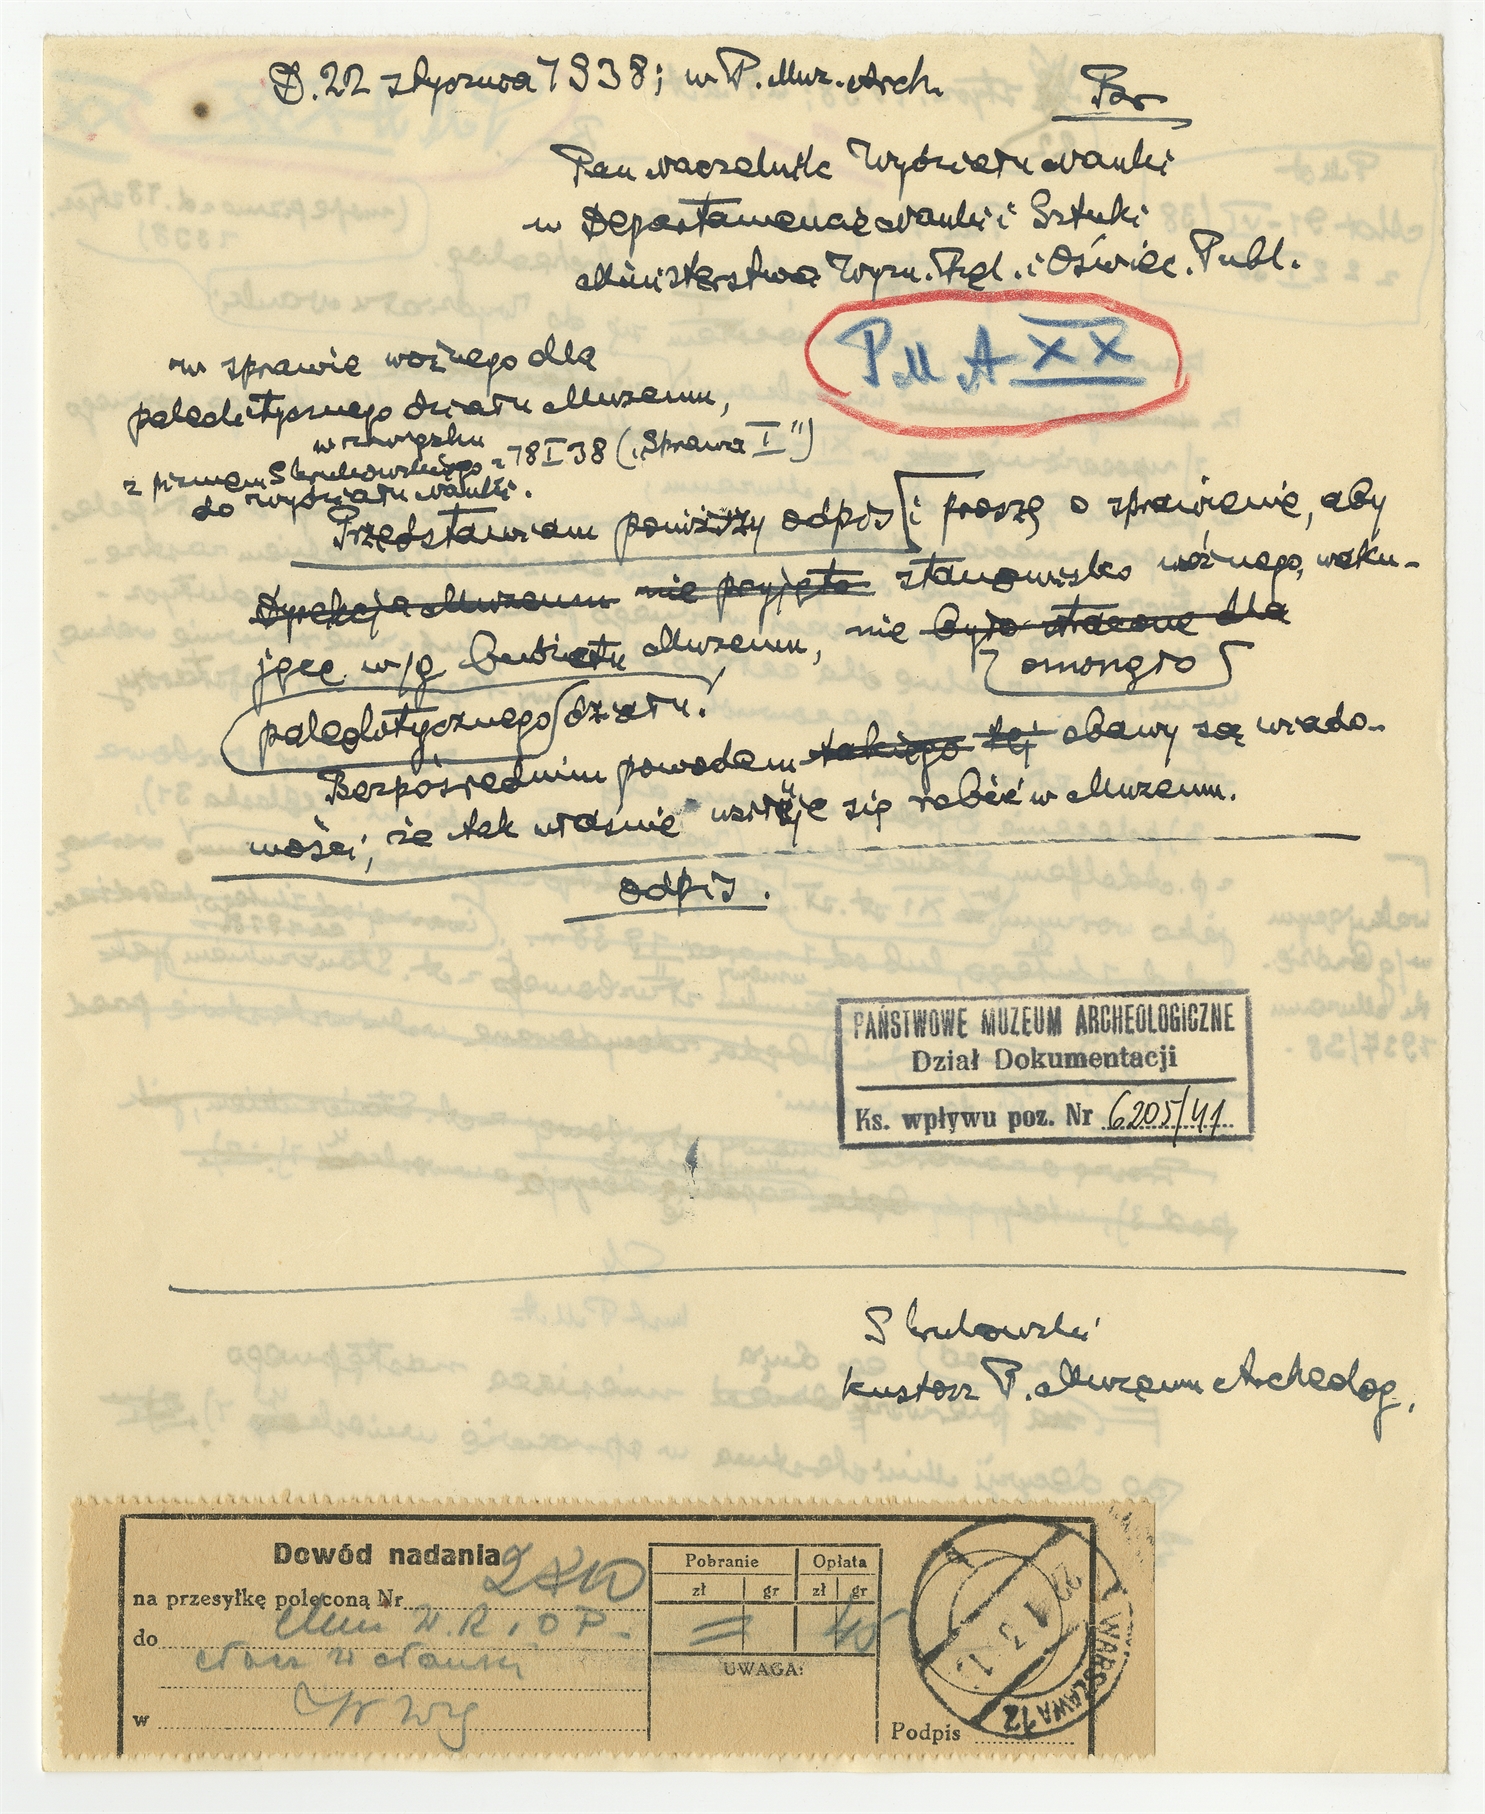 D. 22 stycznia 1938; w P. Muz. Arch.
Pan Naczelnik Wydziału Nauki
w Departamencie Nauki i Sztuki
Ministerstwa Wyzn. Rel. i Oświec. Publ.
P M A XX
w sprawie woźnego dla
paleolitycznego działu Muzeum,
w związku
z pismem Krukowskiego z 18 I 38 („Sprawa I")
do Wydziału Nauki.
Przedstawiam poniższy odpis i proszę o sprawienie, aby
Dyrekcja Muzeum nie przyjęto stanowisko woźnego, waku-
jące w/g budżetu Muzeum, nie było stracone dla
omongro
paleolitycznego działu.
Bezpośrednim powodem takiego tej obawy są wiado-
mości, że tak właśnie usiłuje się robić w Muzeum.
odpis.
PAŃSTWOWE MUZEUM ARCHEOLOGICZNE
Dział Dokumentacji
Ks. wpływu poz. Nr 6205/41
S Krukowski
kustosz P. Muzeum Archeolog.
Dowód nadania
na przesyłkę poleconą Nr
do Min W. R. i O P.
Nacz W Nauki
w
Pobranie
Opłata
zł gr zł gr
UWAGA:
Podpis
WARSZAWA 12